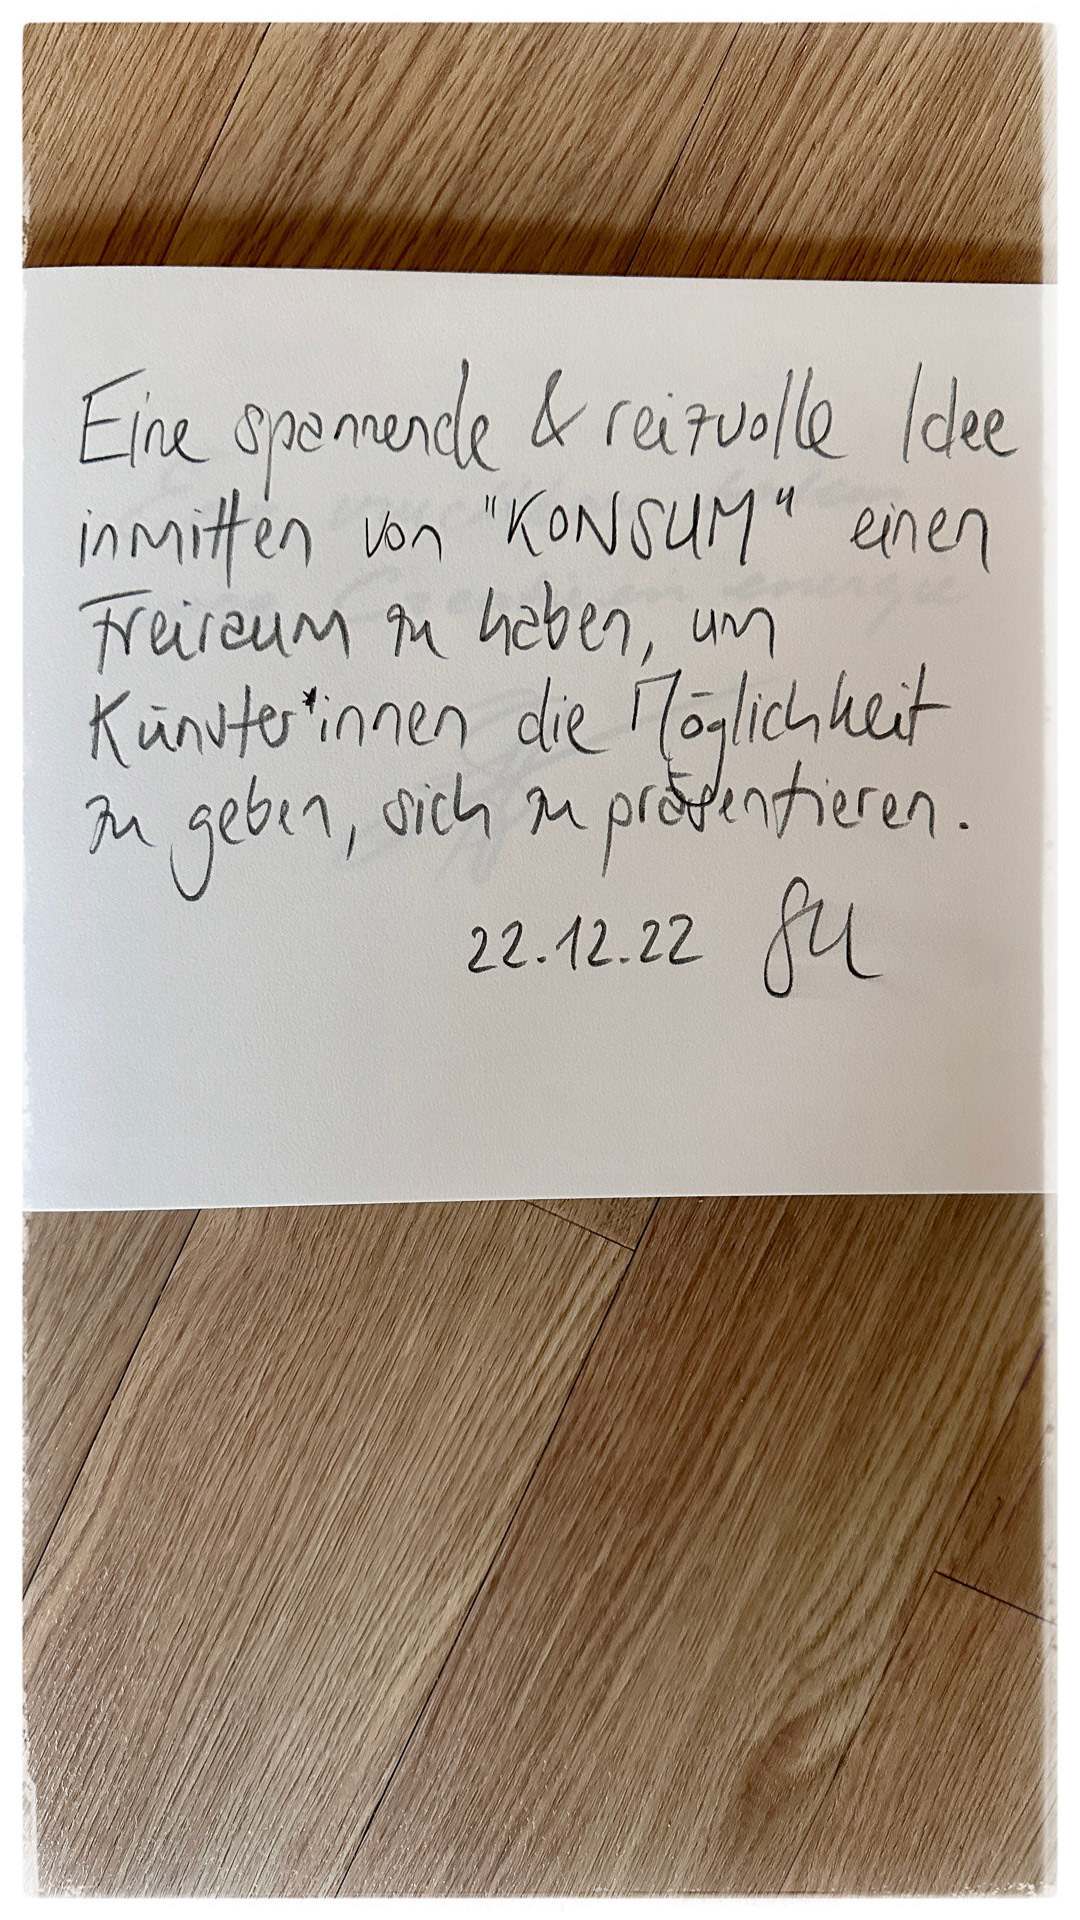 Eine spannende & reizvolle Idee
inmitten von "KONSUM" einen
Freiraum zu haben, um
Künster*innen die Möglichkeit
zu geben, sich zu präsentieren.
22.12.22